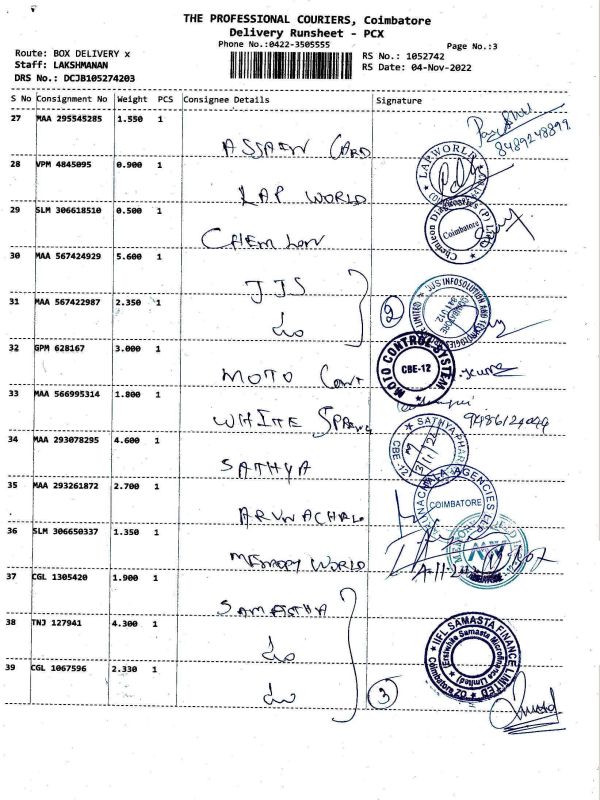 THE PROFESSIONAL COURIERS, Coimbatore
Delivery Runsheet - PCX
Phone No.:0422-3505555
Page No.:3
Route: BOX DELIVERY x
RS No.: 1052742
Staff: LAKSHMANAN
RS Date: 04-Nov-2022
DRS No.: DCJB105274203
S No Consignment No Weight PCS Consignee Details Signature
27 MAA 295545285 1.550 1
8489248899
28 VPM 4845095 0.900 1
LAP WORLD
LAPWORLD
29 SLM 306618510 0.500 1
Coimbatore
30 MAA 567424929 5.600 1
JJS
JJS INFOSOLUTION AND TECHNOLOGIES
31 MAA 567422987 2.350 1
2
32 GPM 628167 3.000 1
MOTO Cont
MOTO CONTROL SYSTEM
CBE-12
33 MAA 566995314 1.800 1
WHITE
34 MAA 293078295 4.600 1
SATHYA
SATHYA PHAR
CBE-12
35 MAA 293261872 2.700 1
ARUNACHALA AGENCIES LLP
COIMBATORE
36 SLM 306650337 1.350 1
MEMORY WORLD
37 CGL 1305420 1.900 1
38 TNJ 127941 4.300 1
IIFL SAMASTA FINANCE LIMITED
(Erstwhile Samasta Microfinance Limited)
Coimbatore ZO
39 CGL 1067596 2.330 1
3